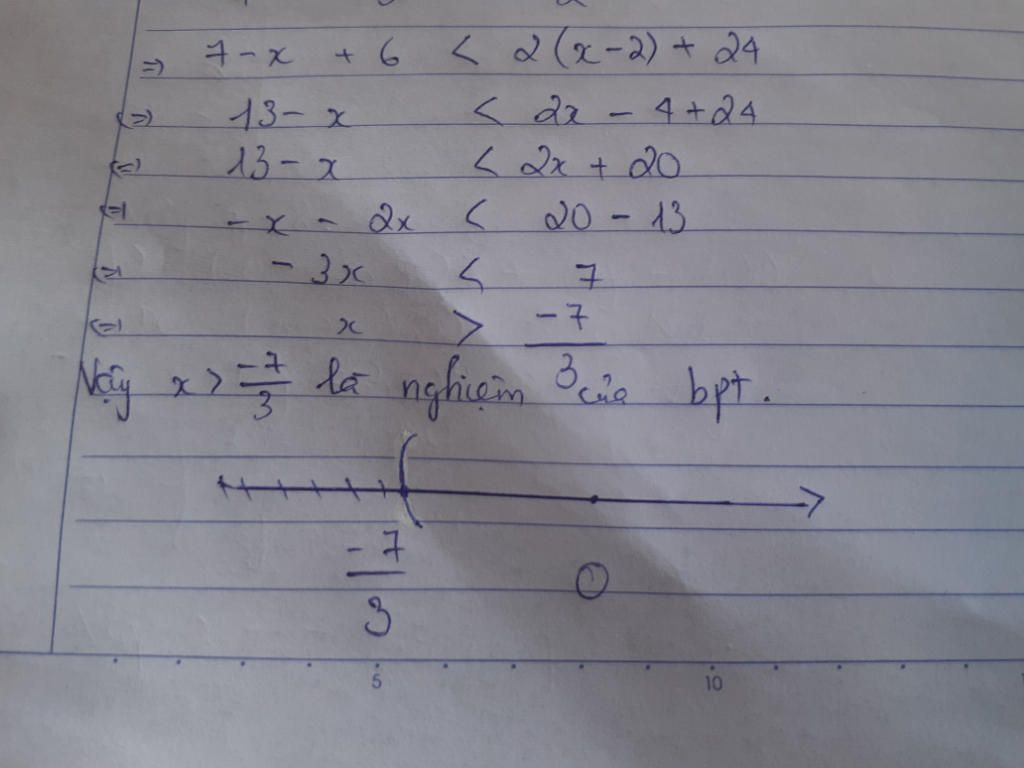 => 7 - x + 6 < 2(x-2) + 24
<=> 13 - x < 2x - 4 + 24
<=> 13 - x < 2x + 20
<=> - x - 2x < 20 - 13
<=> - 3x < 7
<=> x > -7/3
Vậy x > -7/3 là nghiệm của bpt.
-7/3 0
5 10